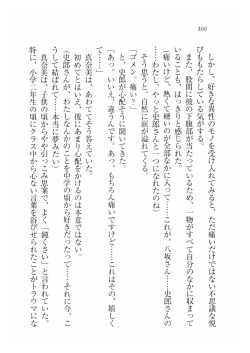 300
しかし、好きな異性のモノを受け入れてみると、ただ痛いだけではない不思議な悦
びももたらしている気がする。
また、股間に彼の下腹部が当たっているため、一物がすべて自分のなかに収まって
いることも、はっきりと感じられた。
(痛いけど、熱くて硬いのが全部なかに入って……これが、八坂さん……史郎さんの
なのね？　わたし、やっと史郎さんと一つになれたんだ)
そう思うと、自然に涙が溢れてくる。
「ゴメン。痛い？」
と、史郎が心配そうに聞いてきた。
「あっ、いいえ、違うんです。あっ、もちろん痛いですけど……これはその、嬉しく
て……」
真奈美は、あわててそう答えていた。
初めてとはいえ、彼にあまり心配をかけるのは本意ではない。
(史郎さんが、わたしなんかのことを中学の頃から好きだったって……それに今、こ
うして結ばれて……本当に夢みたい)
真奈美は、子供の頃からやや引っこみ思案で、よく「鈍くさい」と言われていた。
特に、小学二年生の頃にクラス中から心ない言葉を浴びせられたことがトラウマにな